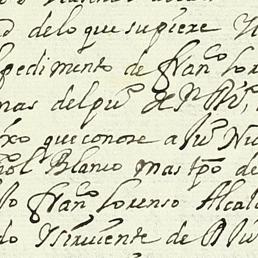 d delo que supiere
pedimento de fran.co Lor
mas del pu.o de
ixo que conose a Ju.o Nu
ñol Blanco mas tpo de
fran.co Lorenso Alcal
do Y siruiente de